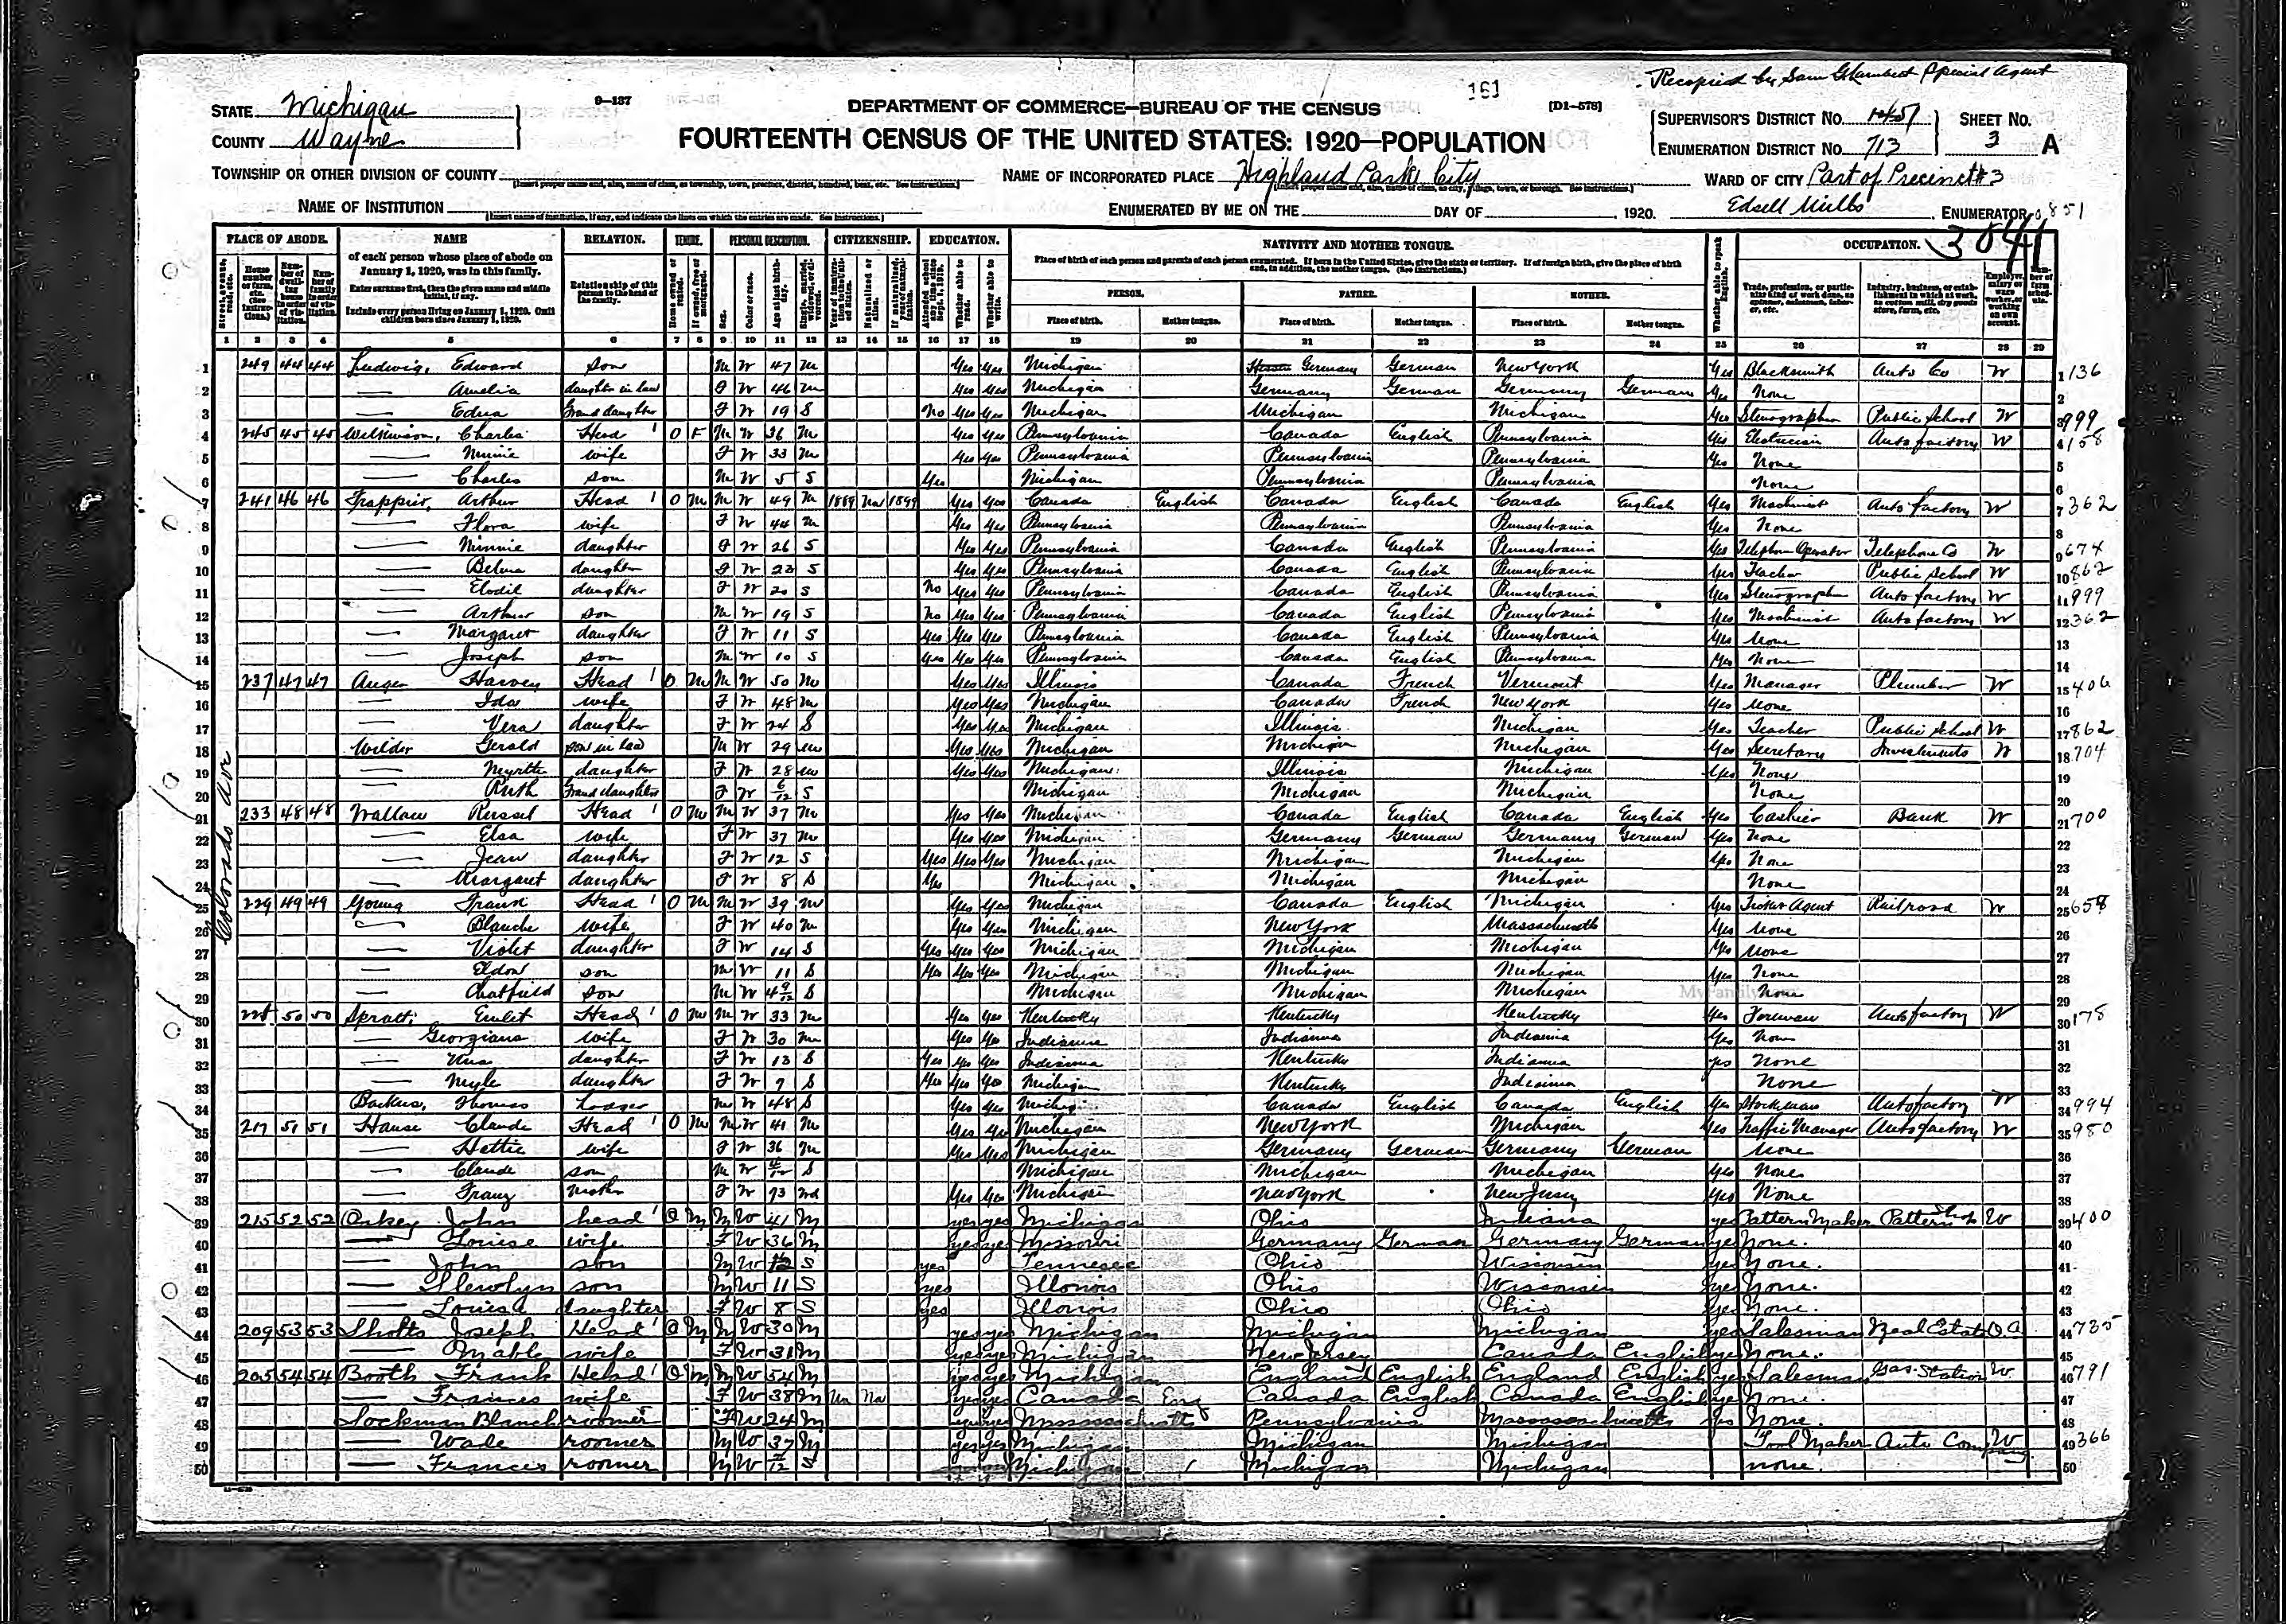 Recopied by Sam G Lambert Special Agent
161
STATE Michigan
9-137
DEPARTMENT OF COMMERCE—BUREAU OF THE CENSUS
[D1-578]
COUNTY Wayne
FOURTEENTH CENSUS OF THE UNITED STATES: 1920—POPULATION
SUPERVISOR'S DISTRICT No. SHEET No.
ENUMERATION DISTRICT No. 713 3 A
TOWNSHIP OR OTHER DIVISION OF COUNTY
NAME OF INCORPORATED PLACE Highland Park City
WARD OF CITY Part of Precinct #3
NAME OF INSTITUTION
ENUMERATED BY ME ON THE DAY OF , 1920. Edsell Mills , ENUMERATOR 851
3041
PLACE OF ABODE. NAME RELATION. TENURE. PERSONAL DESCRIPTION. CITIZENSHIP. EDUCATION. NATIVITY AND MOTHER TONGUE. OCCUPATION.
of each person whose place of abode on January 1, 1920, was in this family.
Enter surname first, then the given name and middle initial, if any.
Include every person living on January 1, 1920. Omit children born since January 1, 1920.
Relationship of this person to the head of the family.
PERSON. FATHER. MOTHER.
Place of birth. Mother tongue. Place of birth. Mother tongue. Place of birth. Mother tongue.
1 2 3 4 5 6 7 8 9 10 11 12 13 14 15 16 17 18 19 20 21 22 23 24 25 26 27 28 29
Colorado Ave
1 249 44 44 Ludwig, Edward son M W 47 M Yes Yes Michigan Germany German New York Yes Blacksmith Auto Co W 1 136
2 — Amelia daughter in law F W 46 M Yes Yes Michigan Germany German Germany German Yes None 2
3 — Edna Grand daughter F W 19 S No Yes Yes Michigan Michigan Michigan Yes Stenographer Public School W 3 999
4 245 45 45 Wilkinson, Charles Head 1 O F M W 36 M Yes Yes Pennsylvania Canada English Pennsylvania Yes Electrician Auto factory W 4 158
5 — Minnie wife F W 33 M Yes Yes Pennsylvania Pennsylvania Pennsylvania Yes None 5
6 — Charles son M W 5 S Yes Michigan Pennsylvania Pennsylvania None 6
7 241 46 46 Frappier, Arthur Head 1 O M M W 49 M 1889 Na 1899 Yes Yes Canada English Canada English Canada English Yes Machinist Auto factory W 7 362
8 — Flora wife F W 44 M Yes Yes Pennsylvania Pennsylvania Pennsylvania Yes None 8
9 — Minnie daughter F W 26 S Yes Yes Pennsylvania Canada English Pennsylvania Yes Telephone Operator Telephone Co W 9 674
10 — Belma daughter F W 23 S Yes Yes Pennsylvania Canada English Pennsylvania Yes Teacher Public School W 10 862
11 — Elodil daughter F W 20 S No Yes Yes Pennsylvania Canada English Pennsylvania Yes Stenographer Auto factory W 11 999
12 — Arthur son M W 19 S No Yes Yes Pennsylvania Canada English Pennsylvania Yes Machinist Auto factory W 12 362
13 — Margaret daughter F W 11 S Yes Yes Yes Pennsylvania Canada English Pennsylvania Yes None 13
14 — Joseph son M W 10 S Yes Yes Yes Pennsylvania Canada English Pennsylvania Yes None 14
15 237 47 47 Auger Harvey Head 1 O M M W 50 M Yes Yes Illinois Canada French Vermont Yes Manager Plumber W 15 406
16 — Ida wife F W 48 M Yes Yes Michigan Canada French New York Yes None 16
17 — Vera daughter F W 24 S Yes Yes Michigan Illinois Michigan Yes Teacher Public School W 17 862
18 Wilder Gerald son in law M W 29 M Yes Yes Michigan Michigan Michigan Yes Secretary Investments W 18 704
19 — Myrtle daughter F W 28 M Yes Yes Michigan Illinois Michigan Yes None 19
20 — Ruth Grand daughter F W 6/12 S Michigan Michigan Michigan None 20
21 233 48 48 Wallace Russel Head 1 O M M W 37 M Yes Yes Michigan Canada English Canada English Yes Cashier Bank W 21 700
22 — Elsa wife F W 37 M Yes Yes Michigan Germany German Germany German Yes None 22
23 — Jean daughter F W 12 S Yes Yes Yes Michigan Michigan Michigan Yes None 23
24 — Margaret daughter F W 8 S Yes Michigan Michigan Michigan None 24
25 229 49 49 Young Frank Head 1 O M M W 39 M Yes Yes Michigan Canada English Michigan Yes Ticket Agent Railroad W 25 658
26 — Blanche wife F W 40 M Yes Yes Michigan New York Massachusetts Yes None 26
27 — Violet daughter F W 14 S Yes Yes Yes Michigan Michigan Michigan Yes None 27
28 — Eldon son M W 11 S Yes Yes Yes Michigan Michigan Michigan Yes None 28
29 — Chatfield son M W 4 9/12 S Michigan Michigan Michigan None 29
30 50 50 Spratt, Emlet Head 1 O M M W 33 M Yes Yes Kentucky Kentucky Kentucky Yes Foreman Auto factory W 30 178
31 — Georgiana wife F W 30 M Yes Yes Indiana Indiana Indiana Yes None 31
32 — Una daughter F W 13 S Yes Yes Yes Indiana Kentucky Indiana yes None 32
33 — Myle daughter F W 9 S Yes Yes Yes Michigan Kentucky Indiana None 33
34 Backus, Thomas Lodger M W 48 S Yes Yes Michigan Canada English Canada English Yes Stockman Auto factory W 34 994
35 217 51 51 Hause Claude Head 1 O M M W 41 M Yes Yes Michigan New York Michigan Yes Traffic Manager Auto factory W 35 980
36 — Hettie wife F W 36 M Yes Yes Michigan Germany German Germany German None 36
37 — Claude son M W S Michigan Michigan Michigan Yes None 37
38 — Franz Mother F W 73 Wd Yes Yes Michigan New York New Jersey Yes None 38
39 215 52 52 Oskey John head 1 O M M W 41 M yes yes Michigan Ohio Indiana yes Pattern Maker Pattern Shop W 39 400
40 — Louise wife F W 36 M yes yes Missouri Germany German Germany German yes None. 40
41 — John son M W 12 S yes Tennesee Ohio Wisconsin yes None. 41
42 — Llewlyn son M W 11 S yes Illonois Ohio Wisconsin yes None. 42
43 — Louise daughter F W 8 S yes Illonois Ohio Ohio yes None. 43
44 209 53 53 Shotts Joseph Head 1 O M M W 30 M yes yes Michigan Michigan Michigan yes Salesman Real Estate O.A. 44 735
45 — Mable wife F W 31 M yes yes Michigan New Jersey Canada English yes None. 45
46 205 54 54 Booth Frank Head 1 O M M W 54 M yes yes Michigan England English England English yes Salesman Gas Station W 46 791
47 — Frances wife F W 38 M Un Na yes yes Canada Eng Canada English Canada English yes None. 47
48 Lockman Blanch roomer F W 24 M yes yes Massassachusetts Pennsylvania Massassachusetts yes None. 48
49 — Wade roomer M W 37 M yes yes Michigan Michigan Michigan Tool Maker Auto Company W 49 366
50 — Frances roomer M W S Michigan Michigan Michigan none. 50